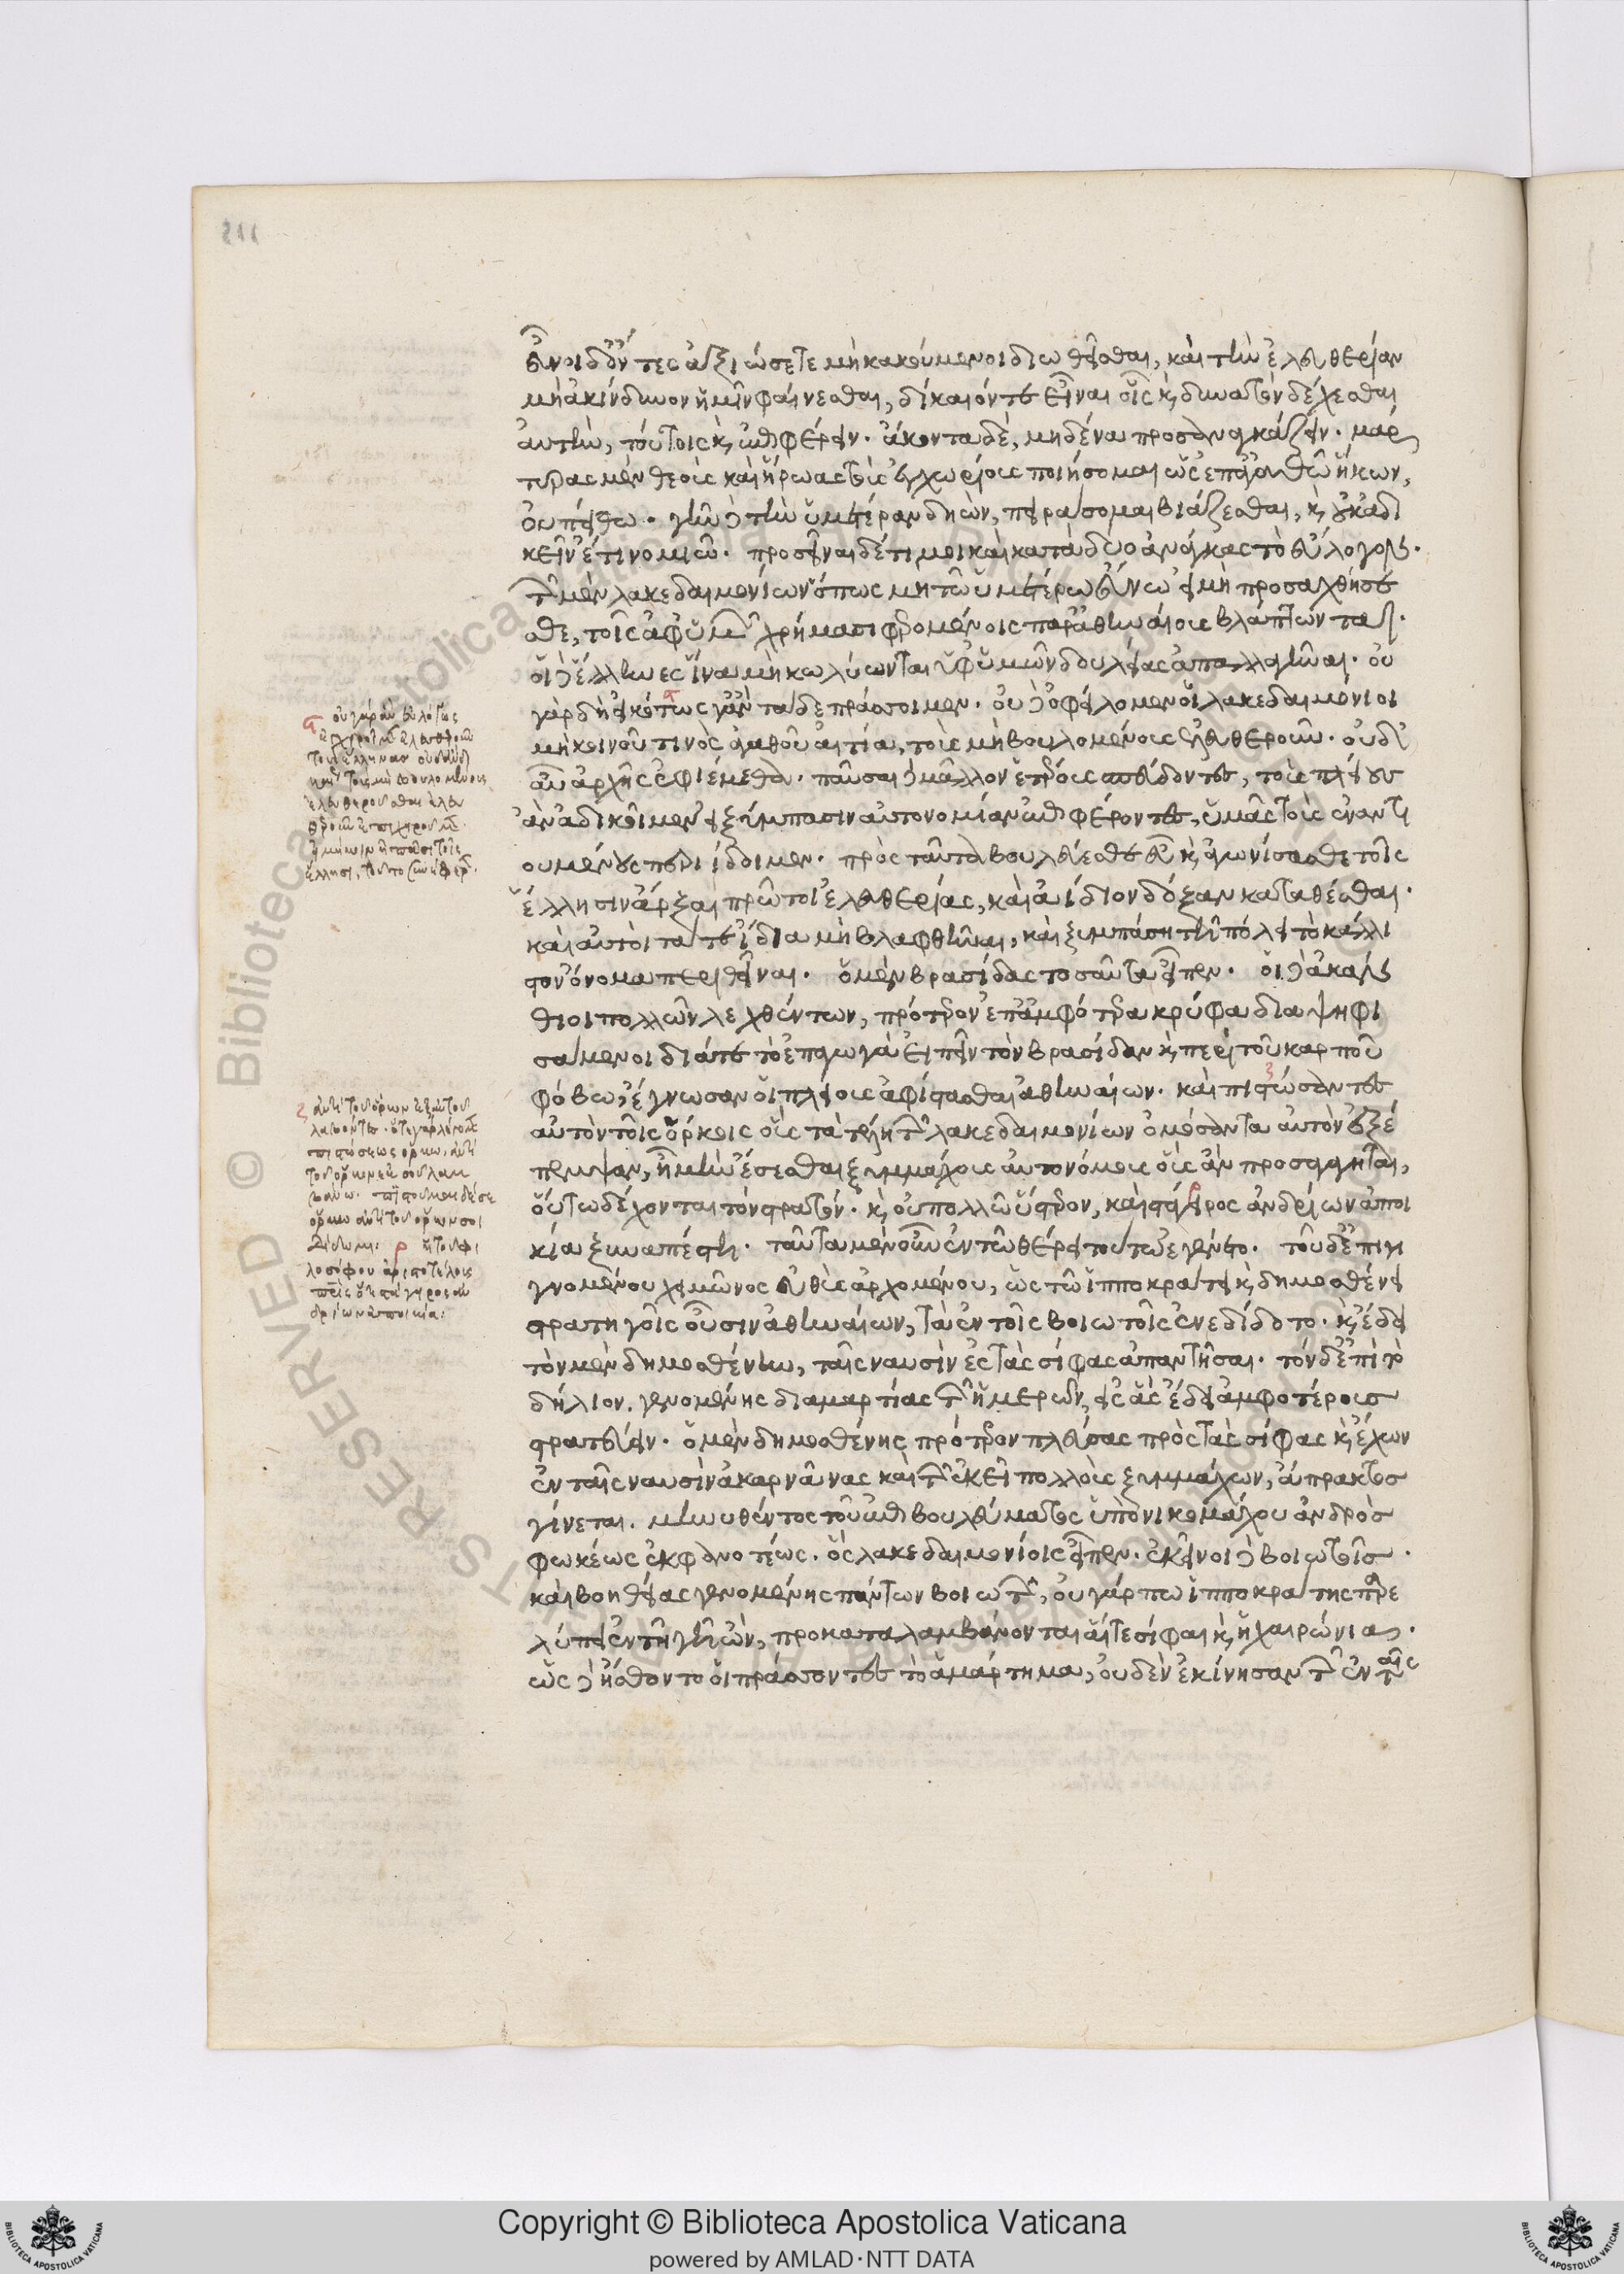 εὖνοι δ' ὄντες ἀξιώσετε μὴ κακούμενοι διωθεῖσθαι, καὶ τὴν ἐλευθερίαν
μὴ ἀκίνδυνον ἡμῖν φαίνεσθαι, δίκαιόν τε εἶναι οἷς κ̀ δυνατὸν δέχεσθαι
αὐτὴν, τούτοις κ̀ ἐπιφέρειν. ἄκοντα δὲ, μηδένα προσαναγκάζειν. μάρ
τυρας μὲν θεοὺς καὶ ἥρωας τοὺς ἐγχωρίους ποιήσομαι ὡς ἐπ' ἀγαθῶ ἥκων,
οὐ πείθω. γῆν δὲ τὴν ὑμετέραν δηῶν, πειράσομαι βιάζεσθαι, κ̀ οὐκ ἀδι
κεῖν ἔτι νομιῶ. προσεῖναι δέ τι μοι καὶ κατὰ δύο ἀνάγκας τὸ εὔλογον.
τῶν μὲν λακεδαιμονίων ὅπως μὴ τῶ ὑμετέρω εὔνω εἰ μὴ προσαχθήσε
σθε, τοῖς ἀφ' ὑμῶν χρήμασι φερομένοις παρ' ἀθηναίοις βλάπτωνται.
οἱ δὲ ἕλληνες ἵνα μὴ κωλύωνται ὑφ' ὑμῶν δουλείας ἀπαλλαγῆναι. οὐ
γὰρ δὴ εἰκότως γ' ἂν τάδε πράσσοιμεν. οὐδὲ ὀφείλομεν οἱ λακεδαιμόνιοι
μὴ κοινοῦ τινὸς ἀγαθοῦ αἰτία, τοὺς μὴ βουλομένους ἐλευθεροῦν. οὐδ'
αὖ ἀρχῆς ἐφιέμεθα. παῦσαι δὲ μᾶλλον ἑτέρους σπεύδοντες, τοὺς πλείους
ἂν ἀδικοῖμεν εἰ ξύμπασιν αὐτονομίαν ἐπιφέροντες, ὑμᾶς τοὺς ἐναντι
ουμένους περιίδοιμεν. πρὸς ταῦτα βουλεύεσθε εὖ κ̀ ἀγωνίσασθε τοῖς
ἕλλησιν ἄρξαι πρῶτοι ἐλευθερίας, καὶ ἀΐδιον δόξαν καταθέσθαι.
καὶ αὐτοὶ τά τε ἴδια μὴ βλαφθῆναι, καὶ ξυμπάση τῆ πόλει τὸ κάλλι
στον ὄνομα περιθεῖναι. ὁ μὲν βρασίδας τοσαῦτα εἶπεν. οἱ δὲ ἀκάν
θιοι πολλῶν λεχθέντων, πρότερον ἐπ' ἀμφότερα κρύφα διαψηφι
σάμενοι διά τε τὸ ἐπαγωγὰ εἰπεῖν τὸν βρασίδαν κ̀ περὶ τοῦ καρποῦ
φόβω, ἔγνωσαν οἱ πλείους ἀφίστασθαι ἀθηναίων. καὶ πιστώσαντες
αὐτὸν τοῖς ὅρκοις οὓς τὰ τέλη τῶν λακεδαιμονίων ὀμόσαντα αὐτὸν ἐξέ
πεμψαν, ἦ μὴν ἔσεσθαι ξυμμάχους αὐτονόμους οὓς ἂν προσαγάγηται,
οὕτω δέχονται τὸν στρατόν. κ̀ οὐ πολλῶ ὕστερον, καὶ στάγειρος ἀνδρίων ἀποι
κία ξυναπέστη. ταῦτα μὲν οὖν ἐν τῶ θέρει τούτω ἐγένετο. τοῦ δ' ἐπιγι
γνομένου χειμῶνος εὐθὺς ἀρχομένου, ὡς τῶ ἱπποκράτει κ̀ δημοσθένει
στρατηγοῖς οὖσιν ἀθηναίων, τὰ ἐν τοῖς βοιωτοῖς ἐνεδίδοτο. κ̀ ἔδει
τὸν μὲν δημοσθένην, ταῖς ναυσὶν ἐς τὰς σίφας ἀπαντῆσαι. τὸν δ' ἐπὶ τὸ
δήλιον. γενομένης διαμαρτίας τῶν ἡμερῶν, εἰς ἃς ἔδει ἀμφοτέρους
στρατεύειν. ὁ μὲν δημοσθένης πρότερον πλεύσας πρὸς τὰς σίφας κ̀ ἔχων
ἐν ταῖς ναυσὶν ἀκαρνᾶνας καὶ τῶν ἐκεῖ πολλοὺς ξυμμάχων, ἄπρακτος
γίνεται. μηνυθέντος τοῦ ἐπιβουλεύματος ὑπὸ νικομάχου ἀνδρὸς
φωκέως ἐκ φανοτέως. ὃς λακεδαιμονίοις εἶπεν. ἐκεῖνοι δὲ βοιωτοῖς.
καὶ βοηθείας γενομένης πάντων βοιωτῶν, οὐ γάρ πω ἱπποκράτης παρε
λύπει ἐν τῆ γῆ ὢν, προκαταλαμβάνονται αἵ τε σίφαι κ̀ ἡ χαιρώνια.
ὡς δὲ ἤσθοντο οἱ πράσσοντες τὸ ἁμάρτημα, οὐδὲν ἐκίνησαν τῶν ἐν ταῖς
οὐ γὰρ ἂν εὐλόγως
τοὺς ἕλληνας
τοὺς μὴ βουλομένους
ἐλευθεροῦσθαι
ἕλλησι, τοῦτο
ἀντὶ τοῦ ὅρκον
πιστώσεως ὅρκω, ἀντὶ
τοῦ φι
λοσόφου ἀριστοτέλους
πατρὶς ἡ στάγειρος ἀν
δρίων ἀποικία:
Copyright © Biblioteca Apostolica Vaticana
powered by AMLAD·NTT DATA